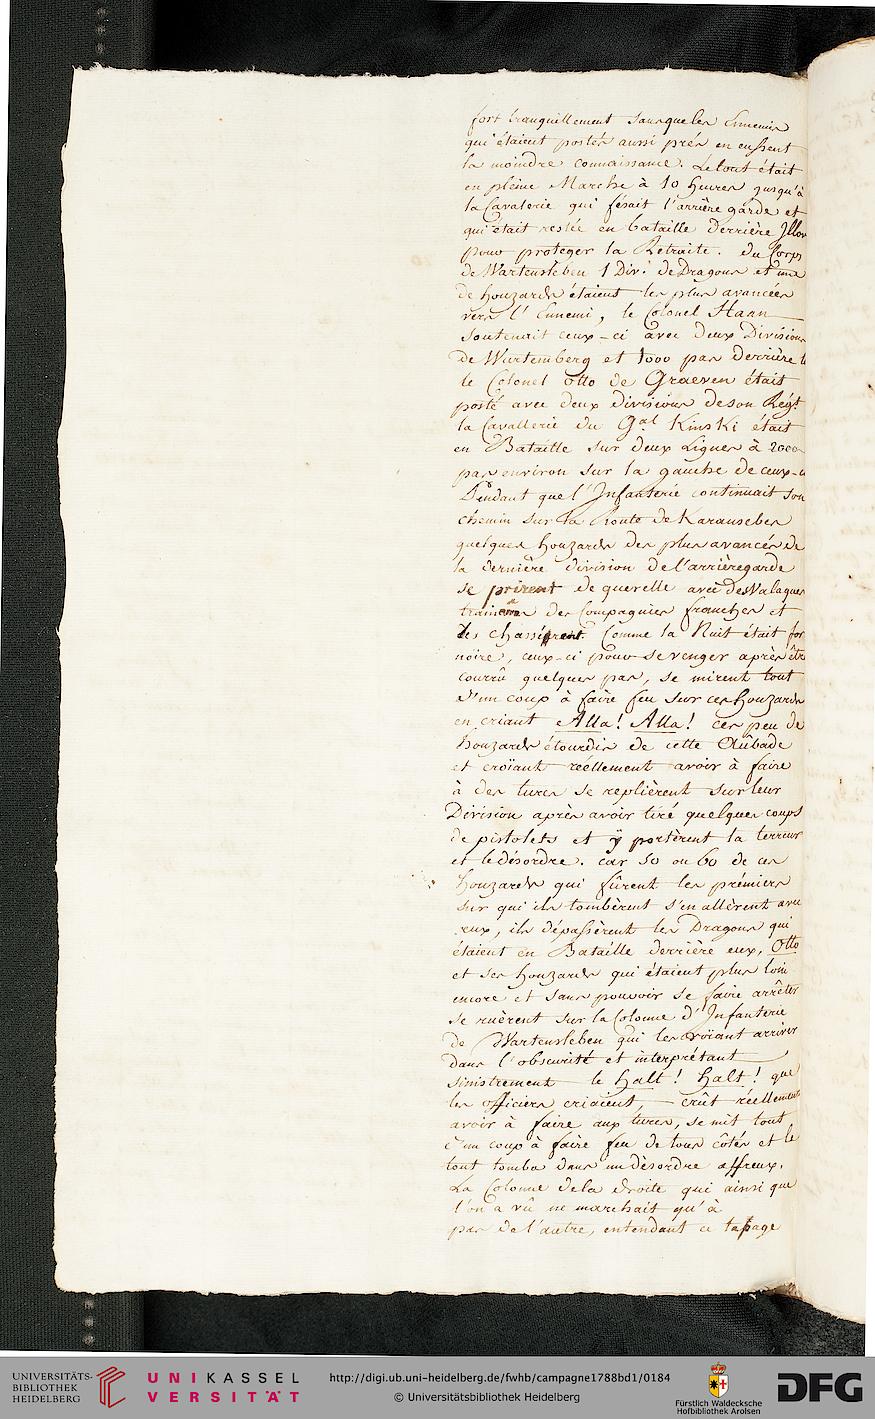 fort tranquillement sansque les Ennemis
qui étaient postés aussi prés en eussent
la moindre connaissance. Le tout était
en pleine Marche à 10 heures jusqu'à
la Cavalerie qui fésait l'arrière garde et
qui était restée en bataille derrière Illov
pour proteger la Retraite. du Corps
de Wartensleben 1 Div: de Dragons et une
de houzards étaient les plus avancées
vers l'Ennemi, le Colonel Hann
soutenait ceux-ci avec deux Divisions
de Wurtemberg et 1000 pas derrière
le Colonel Otto de Graeven était
posté avec deux divisions de son Regt
la Cavallerie du Gal Kinski était
en Bataille sur deux Lignes à 2000
pas environ sur la gauche de ceux-ci
Pendant que l'Infanterie continuait son
chemin sur la Route de Karansebes
quelques houzards des plus avancés de
la dernière division de l'arrièregarde
se prirent de querelle avec des Valaques
traineurs des Compagnies franches et
les chassèrent. Comme la Nuit était for
noire, ceux-ci pour se venger après être
courrû quelques pas, se mirent tout
d'un coup à faire feu sur ces houzards
en criant Alla! Alla! ces peu de
houzards étourdis de cette Aubade
et croïant réellement avoir à faire
à des turcs se replièrent sur leur
Division après avoir tiré quelques coups
de pistolets et ÿ portèrent la terreur
et le désordre. car 50 ou 60 de ces
houzards qui fûrent les prémiers
sur qui ils tombèrent s'en allèrent avec
eux, ils dépassèrent les Dragons qui
étaient en Bataille derrière eux, Otto
et ses houzards qui étaient plus loin
encore et sans pouvoir se faire arrêter
se ruèrent sur la Colonne d'Infanterie
de Wartensleben qui les voïant arriver
dans l'obscurité et interprétant
sinistrement le halt! halt! que
les officiers criaient crût réellement
avoir à faire aux turcs, se mit tout
d'un coup à faire feu de tous côtés et le
tout tomba dans un désordre affreux.
La Colonne de la droite qui ainsi que
l'on a vû ne marchait qu'à
pas de l'autre, entendant ce tapage
UNIVERSITÄTS-
BIBLIOTHEK
HEIDELBERG
UNIKASSEL
VERSITÄT
http://digi.ub.uni-heidelberg.de/fwhb/campagne1788bd1/0184
© Universitätsbibliothek Heidelberg
Fürstlich Waldecksche
Hofbibliothek Arolsen
DFG